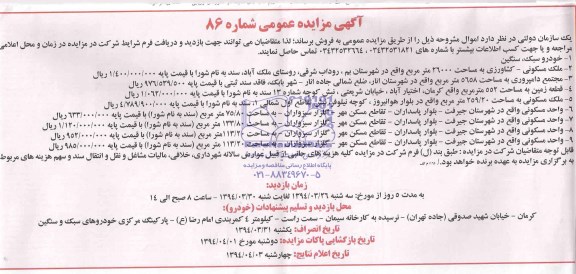 آگهی مزایده عمومی شماره ۸۶
یک سازمان دولتی در نظر دارد اموال مشروحه ذیل را از طریق مزایده عمومی به فروش برساند؛ لذا متقاضیان می توانند جهت بازدید و دریافت فرم شرایط شرکت در مزایده در زمان و محل اعلامی
مراجعه و یا جهت کسب اطلاعات بیشتر با شماره های ۰۳۴۳۲۵۳۱۸۲۱ - ۰۳۴۳۲۵۳۲۶۶۴ تماس حاصل نمایند.
۱- خودرو سبک، سنگین
۲- ملک مسکونی - کشاورزی به مساحت ۳۶۰۰۰ متر مربع واقع در شهرستان بم، روداب شرقی، روستای ملک آباد، سند به نام شورا با قیمت پایه ۱/۴۰۰/۰۰۰/۰۰۰ ریال
۳- مجتمع دامپروری به مساحت ۵۶۵۸ متر مربع واقع در شهرستان انار، ضلع شمالی جاده انار - شهر بابک، فاقد سند ثبتی با قیمت پایه ۹۷۶/۵۳۹/۵۰۰ ریال
۴- قطعه زمین به مساحت ۵۵۲ متر مربع واقع کرمان، اختیار آباد، خیابان شریعتی، نبش کوچه شماره ۱۳ سند به نام شورا با قیمت پایه ۱/۰۹۲/۰۰۰/۰۰۰ ریال
۵- ملک مسکونی به مساحت ۲۵۹/۲۰ متر مربع واقع در بلوار هوانیروز، کوچه نیلوفر، تقاطع اول شمالی ۱، سند به نام شورا با قیمت پایه ۴/۷۸۹/۹۰۰/۰۰۰ ریال
۶- واحد مسکونی واقع در شهرستان جیرفت - بلوار پاسداران - تقاطع مسکن مهر - گلزار سبزواران - به مساحت ۷۵ متر مربع (سند به نام شورا) با قیمت پایه ۶۳۳/۰۰۰/۰۰۰ ریال
۷- واحد مسکونی واقع در شهرستان جیرفت - بلوار پاسداران - تقاطع مسکن مهر - گلزار سبزواران - به مساحت ۱۳۳/۸ متر مربع (سند به نام شورا) با قیمت پایه ۱/۱۲۰/۰۰۰/۰۰۰ ریال
۸- واحد مسکونی واقع در شهرستان جیرفت - بلوار پاسداران - تقاطع مسکن مهر - گلزار سبزواران - به مساحت ۱۱۳/۲ متر مربع (سند به نام شورا) با قیمت پایه ۹۵۲/۰۰۰/۰۰۰ ریال
۹- واحد مسکونی واقع در شهرستان جیرفت - بلوار پاسداران - تقاطع مسکن مهر - گلزار سبزواران - به مساحت ۱۱۳/۲ متر مربع (سند به نام شورا) با قیمت پایه ۹۸۵/۰۰۰/۰۰۰ ریال
قابل توجه متقاضیان شرکت در مزایده: طبق بند (ل) فرم شرکت در مزایده کلیه هزینه های جانبی از قبیل عوارض سالانه شهرداری، خلافی، مالیات مشاغل و نقل و انتقال سند و سهم هزینه های مربوط
به برگزاری مزایده به عهده برنده خواهد بود.
پایگاه اطلاع رسانی مناقصه و مزایده
۰۲۱-۸۸۳۴۹۶۷۰-۵
زمان بازدید:
به مدت ۵ روز از مورخ: سه شنبه ۱۳۹۴/۰۳/۲۶ لغایت شنبه ۱۳۹۴/۰۳/۳۰ - ساعت ۸ صبح الی ۱۴
محل بازدید و تسلیم پیشنهادات (خودرو):
کرمان - خیابان شهید صدوقی (جاده تهران) - نرسیده به کارخانه سیمان - سمت راست - کیلومتر ۴ کمربندی امام رضا (ع) - پارکینگ مرکزی خودروهای سبک و سنگین
تاریخ انصراف: یکشنبه ۱۳۹۴/۰۳/۳۱
تاریخ بازگشایی پاکات مزایده: دوشنبه مورخ ۱۳۹۴/۰۴/۰۱
تاریخ اعلام نتایج: چهارشنبه ۱۳۹۴/۰۴/۰۳